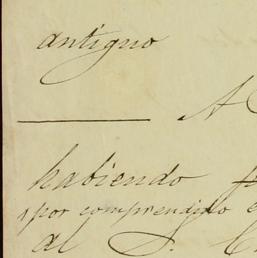 antiguo
A
habiendo
por comprendido
al S.